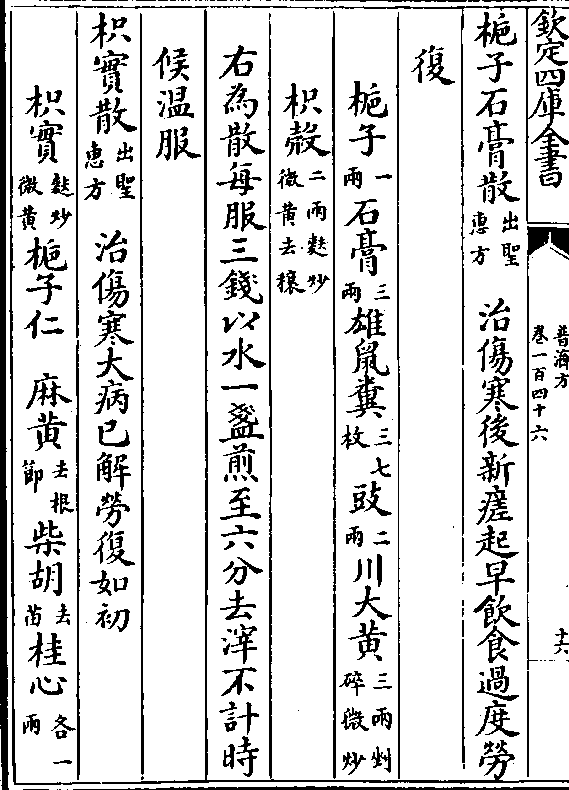 欽定四庫全書
普濟方
卷一百四十六
十六
梔子石膏散出聖惠方　治傷寒後新瘥起早飲食過度勞
復
梔子一兩　石膏三兩　雄鼠糞三七枚　豉二兩　川大黄三兩剉碎微炒
枳殻二兩麩炒微黄去穰
右為散每服三錢以水一盞煎至六分去滓不計時
候温服
枳實散出聖惠方　治傷寒大病已解勞復如初
枳實麩炒微黄　梔子仁　麻黄去根節　柴胡去苗　桂心各一兩